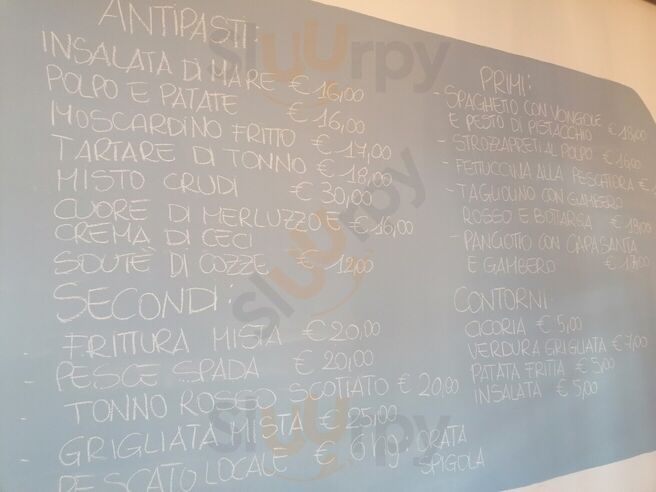 ANTIPASTI:
INSALATA DI MARE € 16,00
POLPO E PATATE € 16,00
MOSCARDINO FRITTO € 17,00
TARTARE DI TONNO € 18,00
MISTO CRUDI € 30,00
CUORE DI MERLUZZO E € 16,00
CREMA DI CECI
SOUTÈ DI COZZE € 12,00
SECONDI:
- FRITTURA MISTA € 20,00
- PESCE SPADA € 20,00
- TONNO ROSSO SCOTTATO € 20,00
- GRIGLIATA MISTA € 25,00
PESCATO LOCALE € 6 hg ORATA
SPIGOLA
PRIMI:
- SPAGHETTO CON VONGOLE
E PESTO DI PISTACCHIO € 18,00
- STROZZAPRETI AL POLPO € 16,00
- FETTUCCINA ALLA PESCATORA €
- TAGLIOLINO CON GAMBERO
ROSSO E BOTTARGA € 18,00
- PANCIOTTO CON CAPASANTA
E GAMBERO € 17,00
CONTORNI:
CICORIA € 5,00
VERDURA GRIGLIATA € 7,00
PATATA FRITTA € 5,00
INSALATA € 5,00
sluurpy
sluurpy
sluurpy